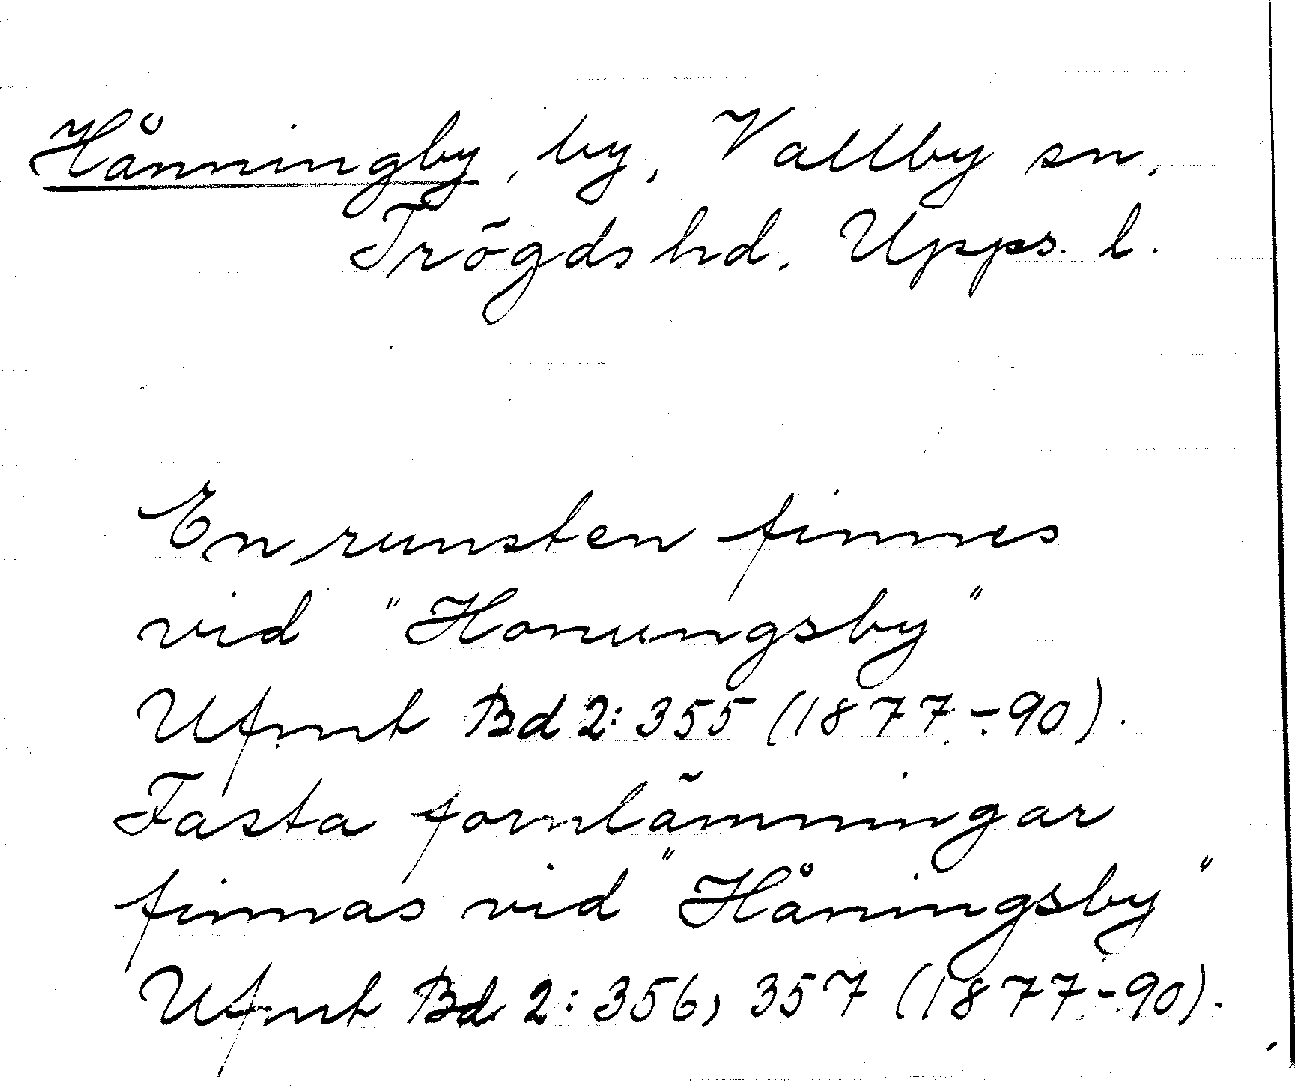 Hånningby, by, Vallby sn,
Trögds hd. Upps. l.
En runsten finnes
vid "Honungsby"
Ufmt Bd 2: 355 (1877-90).
Fasta fornlämningar
finnas vid "Håningsby"
Ufmt Bd 2: 356, 357 (1877-90).